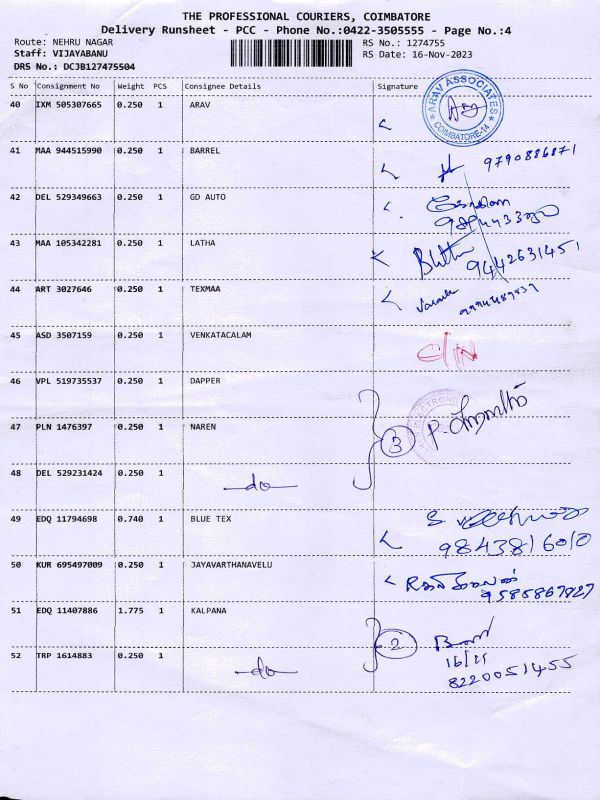 THE PROFESSIONAL COURIERS, COIMBATORE
Delivery Runsheet - PCC - Phone No.:0422-3505555 - Page No.:4
Route: NEHRU NAGAR RS No.: 1274755
Staff: VIJAYABANU RS Date: 16-Nov-2023
DRS No.: DCJB127475504
S No Consignment No Weight PCS Consignee Details Signature
40 IXM 505307665 0.250 1 ARAV
ARAV ASSOCIATES
COIMBATORE-14
41 MAA 944515990 0.250 1 BARREL 9790886871
42 DEL 529349663 0.250 1 GD AUTO
43 MAA 105342281 0.250 1 LATHA 9442631451
44 ART 3027646 0.250 1 TEXMAA
45 ASD 3507159 0.250 1 VENKATACALAM C/N
46 VPL 519735537 0.250 1 DAPPER
47 PLN 1476397 0.250 1 NAREN 3
48 DEL 529231424 0.250 1 -do-
49 EDQ 11794698 0.740 1 BLUE TEX
9843816010
50 KUR 695497009 0.250 1 JAYAVARTHANAVELU
9585867827
51 EDQ 11407886 1.775 1 KALPANA 2
16/11
52 TRP 1614883 0.250 1 -do- 8220051455